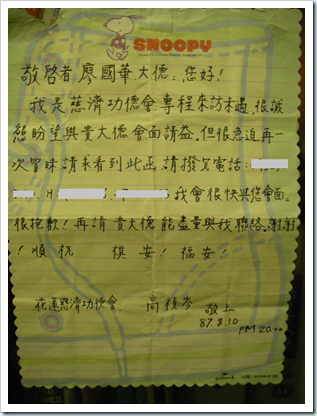 SNOOPY
敬啓者 廖國華大德:您好!
我是慈濟功德會專程來訪未遇,很誠
懇盼望與貴大德會面請益.但很急迫再一
次冒昧請求看到此函.請撥冗電話:
我會很快與您會面.
很抱歉!再請 貴大德 能盡量與我聯絡.謝謝
!順祝 祺安!福安!
花蓮慈濟功德會 高 敬上
87.8.10
PM 20: